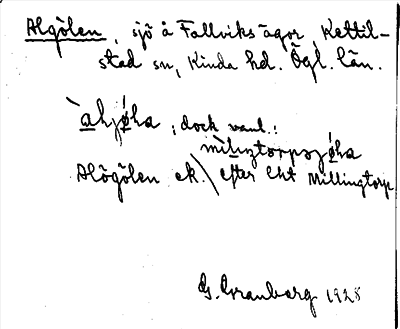 Algölen, sjö å Fallviks ägor, Kettil-
stad sn, Kinda hd. Ögl. län.
àhjø̀ha, dock vanl.:
milingtorpszjøha
Alögölen ek. efter lht Millingtorp
G. Granberg 1928